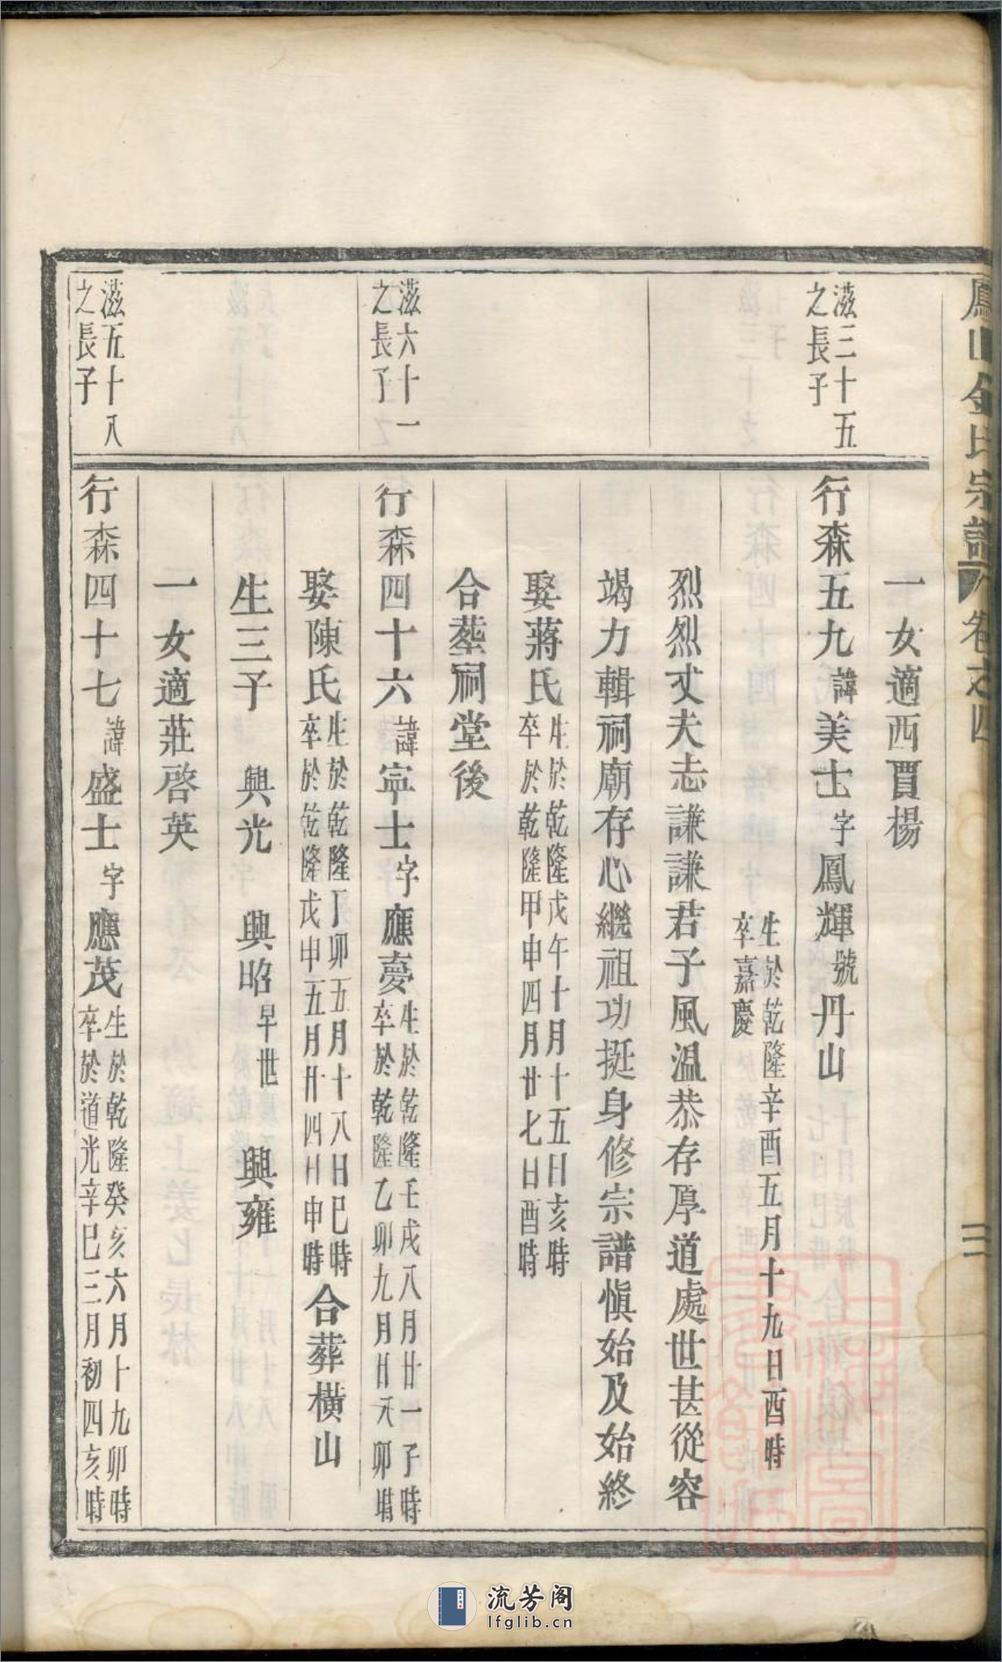 鳳山金氏宗譜 卷之四 三
一女適西賈楊
滋三十五
之長子
行森五九諱美士字鳳輝號丹山
生於乾隆辛酉五月十九日酉時
卒嘉慶
烈烈丈夫志謙謙君子風溫恭存厚道處世甚從容
竭力輯祠廟存心繼祖功挺身修宗譜愼始及始終
娶蔣氏
生於乾隆戊午十月十五日亥時
卒於乾隆甲申四月廿七日酉時
合塟祠堂後
滋六十一
之長子
行森四十六諱寧士字應夣
生於乾隆壬戌八月廿一子時
卒於乾隆乙卯九月廿六卯時
娶陳氏
生於乾隆丁卯五月十八日巳時
卒於乾隆戊申五月廿四日申時
合葬橫山
生三子 興光 興昭早世 興雍
一女適莊啓英
滋五十八
之長子
行森四十七諱盛士字應茂
生於乾隆癸亥六月十九卯時
卒於道光辛巳三月初四亥時
流芳阁
lfglib.cn